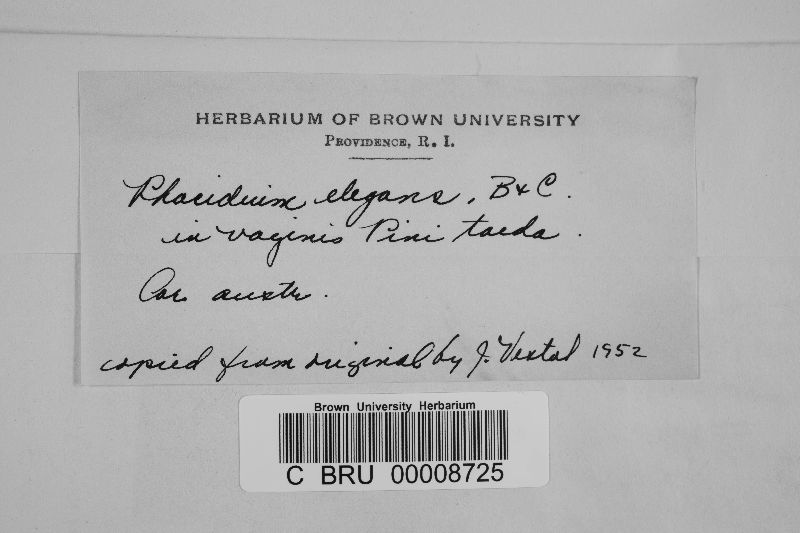 HERBARIUM OF BROWN UNIVERSITY
PROVIDENCE, R. I.
Phacidium elegans, B & C.
in vaginis Pini taeda.
Car. austr.
copied from original by J. Vestal 1952
Brown University Herbarium
C BRU 00008725